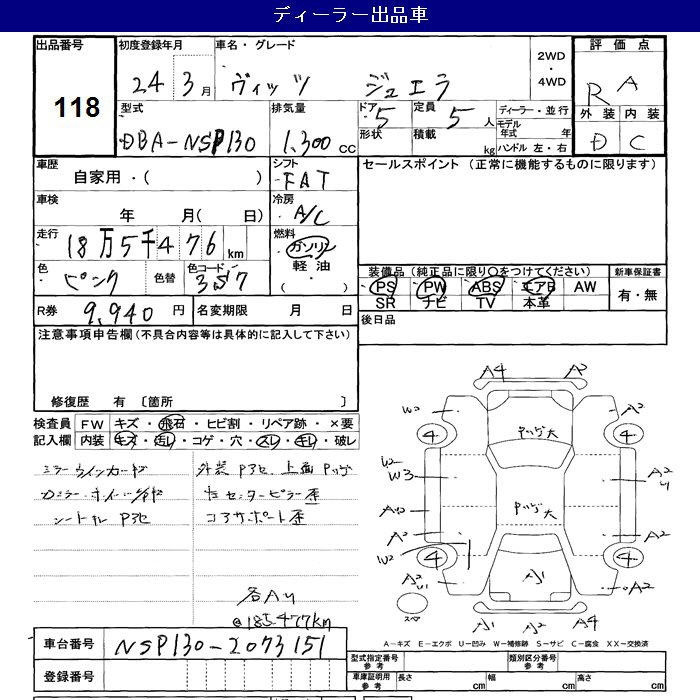 ディーラー出品車
出品番号 118
初度登録年月 24 3月
車名・グレード ヴィッツ ジュエラ
2WD・4WD
評価点 R A
外装 内装
D C
型式 DBA-NSP130
排気量 1,300 cc
ドア 5 形状
定員 5 人 積載 kg
ディーラー・並行
モデル年式 年
ハンドル 左・右
車歴 自家用・( )
シフト FAT
セールスポイント (正常に機能するものに限ります)
車検 年 月( 日)
冷房 A/C
走行 18万5千476 km
燃料 ガソリン 軽油・( )
色 ピンク 色替 色コード 3S7
装備品 (純正品に限り○をつけてください) 新車保証書
PS PW ABS エアB AW 有・無
SR ナビ TV 本革
R券 9,940 円 名変期限 月 日
後日品
注意事項申告欄 (不具合内容等は具体的に記入して下さい)
修復歴 有 〔箇所 〕
検査員記入欄 FW キズ・飛石・ヒビ割・リペア跡・×要
内装 キズ・汚レ・コゲ・穴・スレ・キレ・破レ
外装 P3セ 上面Pツゲ
センターピラー歪
コアサポート歪
各AU
@185.477km
A4 A2
W2 A2
4 4
Pツゲ大
W2
W3 A2
U
Pツゲ大
A2 A2
W2
4 4
A1 A2
A1 A2 A4
スペア
A-キズ E-エクボ U-凹み W-補修跡 S-サビ C-腐食 XX-交換済
車台番号 NSP130-2073151
型式指定番号 参考 類別区分番号 参考
登録番号
車庫証明用 参考 長さ cm 幅 cm 高さ cm